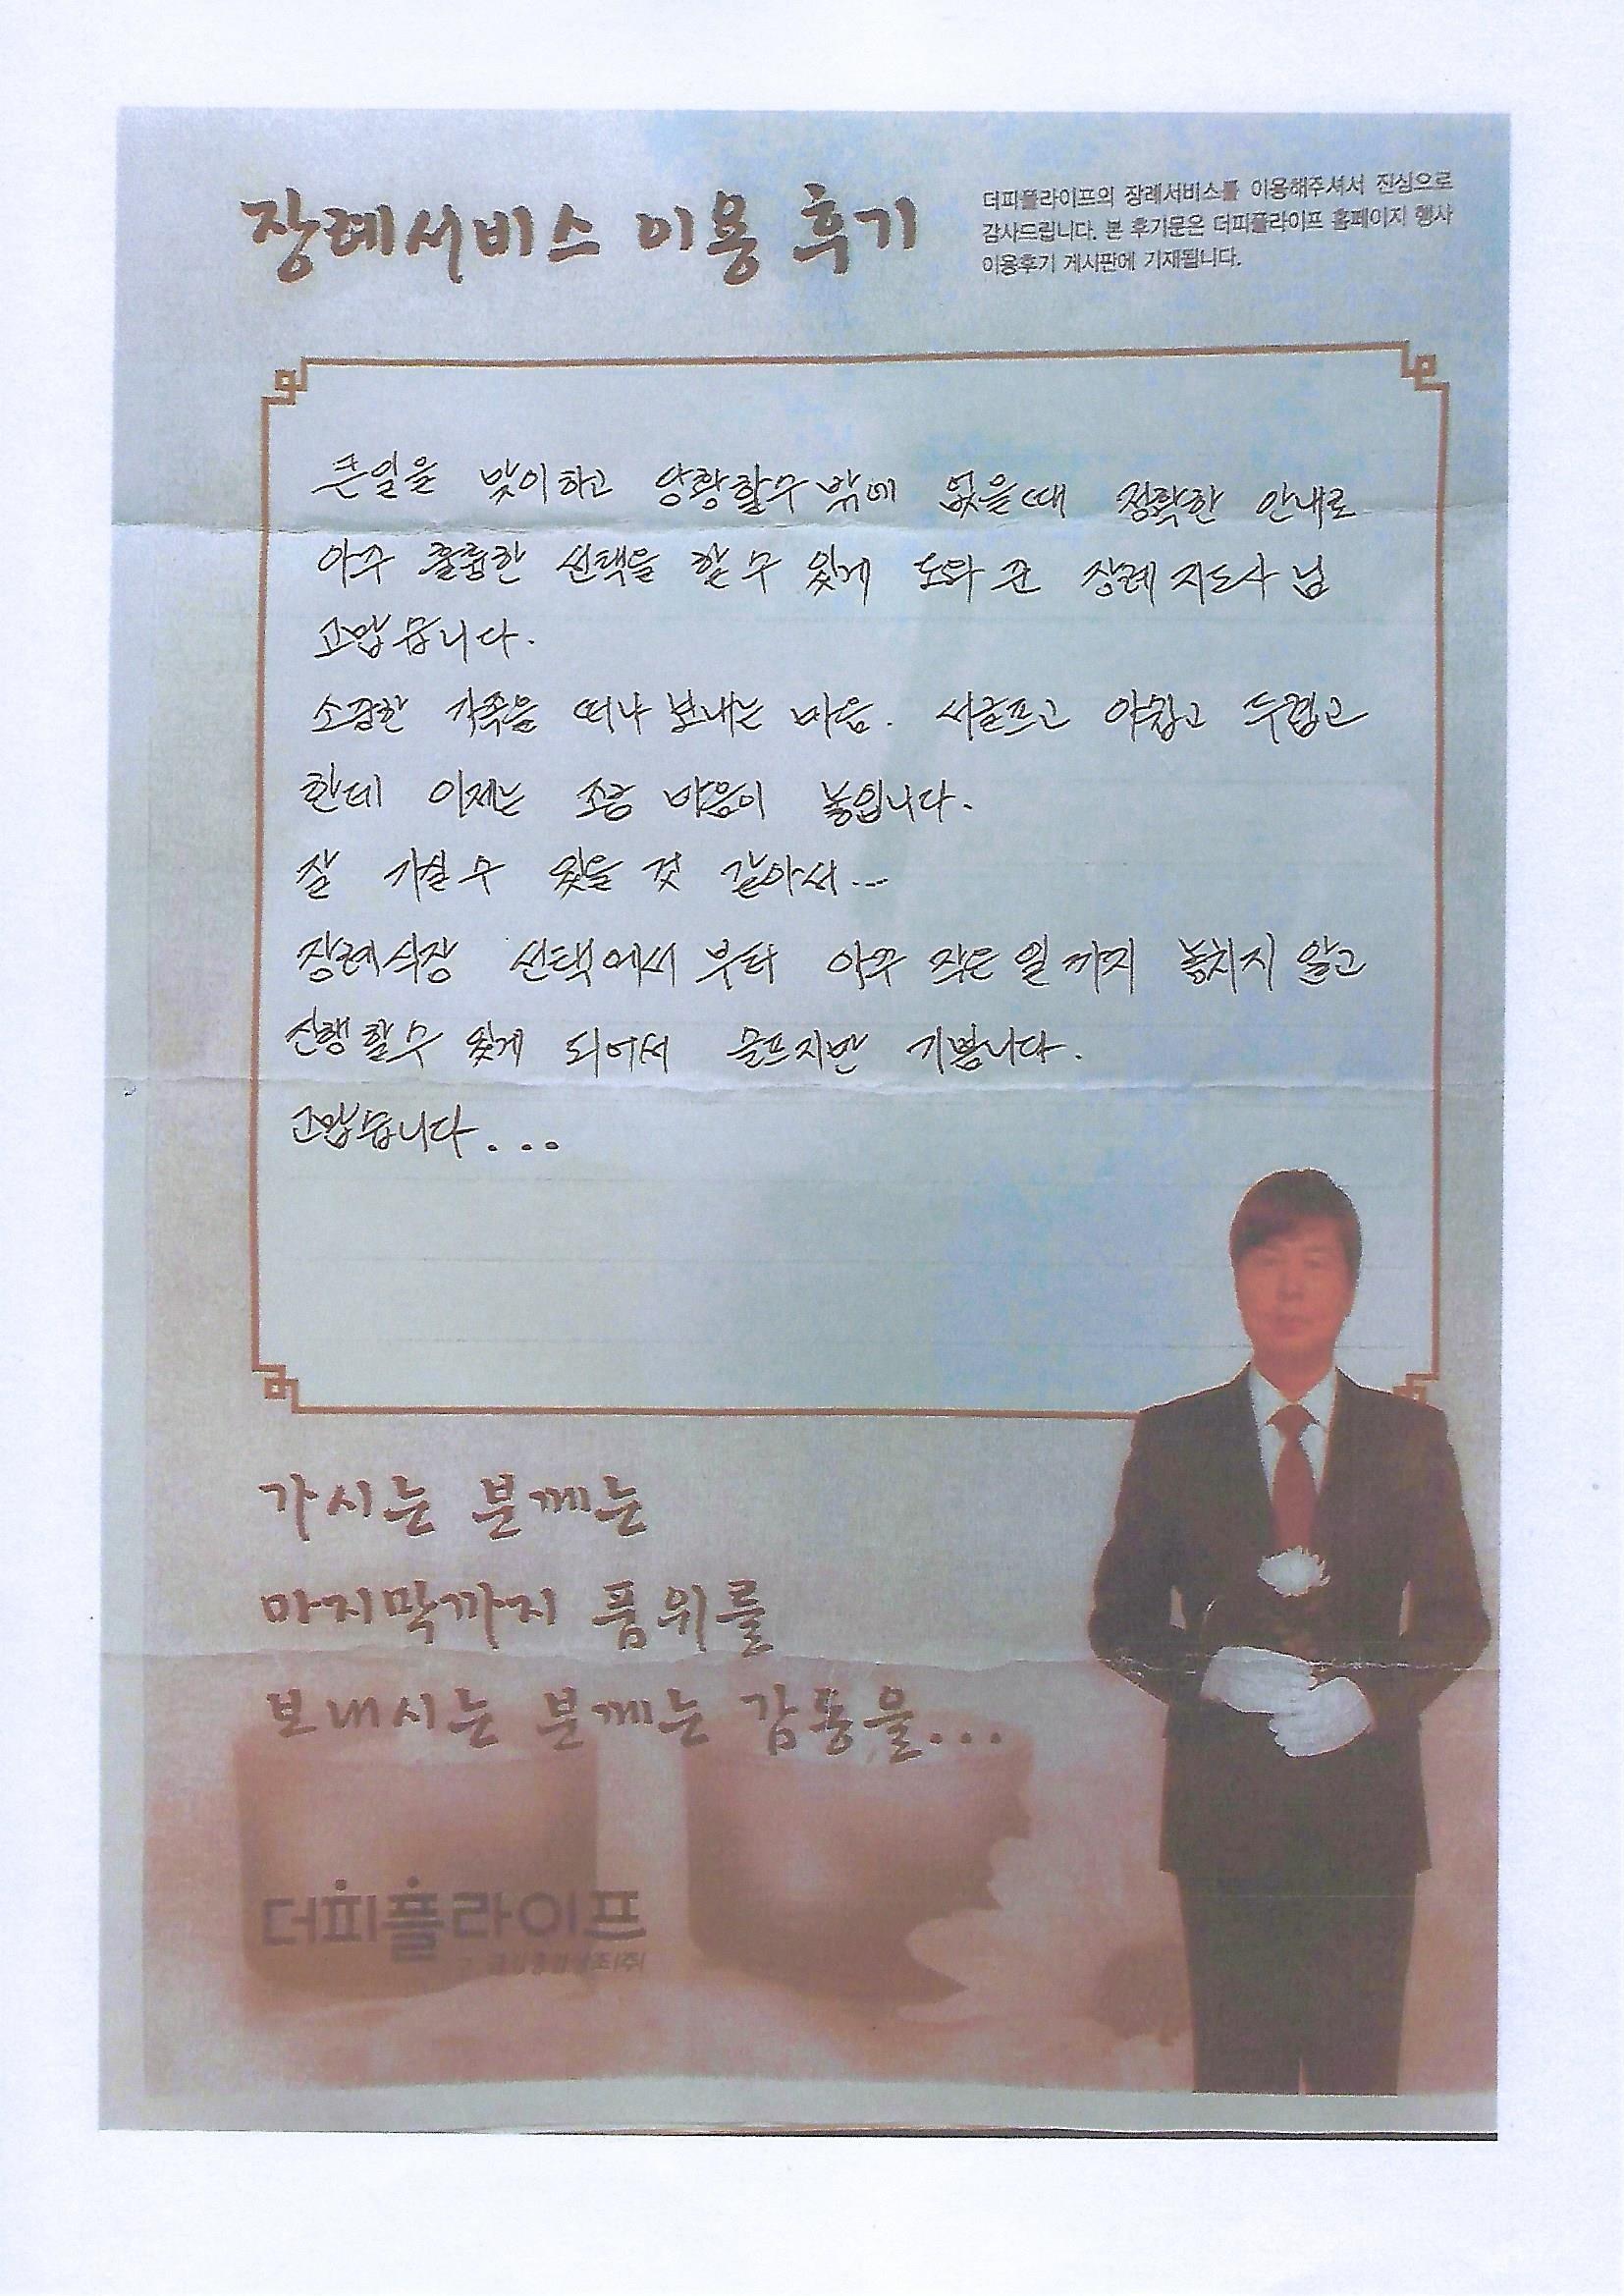 장례서비스 이용 후기
더피플라이프의 장례서비스를 이용해주셔서 진심으로
감사드립니다. 본 후기문은 더피플라이프 홈페이지 행사
이용후기 게시판에 기재됩니다.
큰일을 맞이하고 당황할수밖에 없을때 정확한 안내로
아주 훌륭한 선택을 할 수 있게 도와 준 장례지도사님
고맙습니다.
소중한 가족을 떠나 보내는 마음. 서글프고 아쉽고 두렵고
한데 이제는 조금 마음이 놓입니다.
잘 가실 수 있을 것 같아서...
장례식장 선택에서 부터 아주 작은 일까지 놓치지 않고
진행할수 있게 되어서 슬프지만 기쁩니다.
고맙습니다...
가시는 분께는
마지막까지 품위를
보내시는 분께는 감동을...
더피플라이프